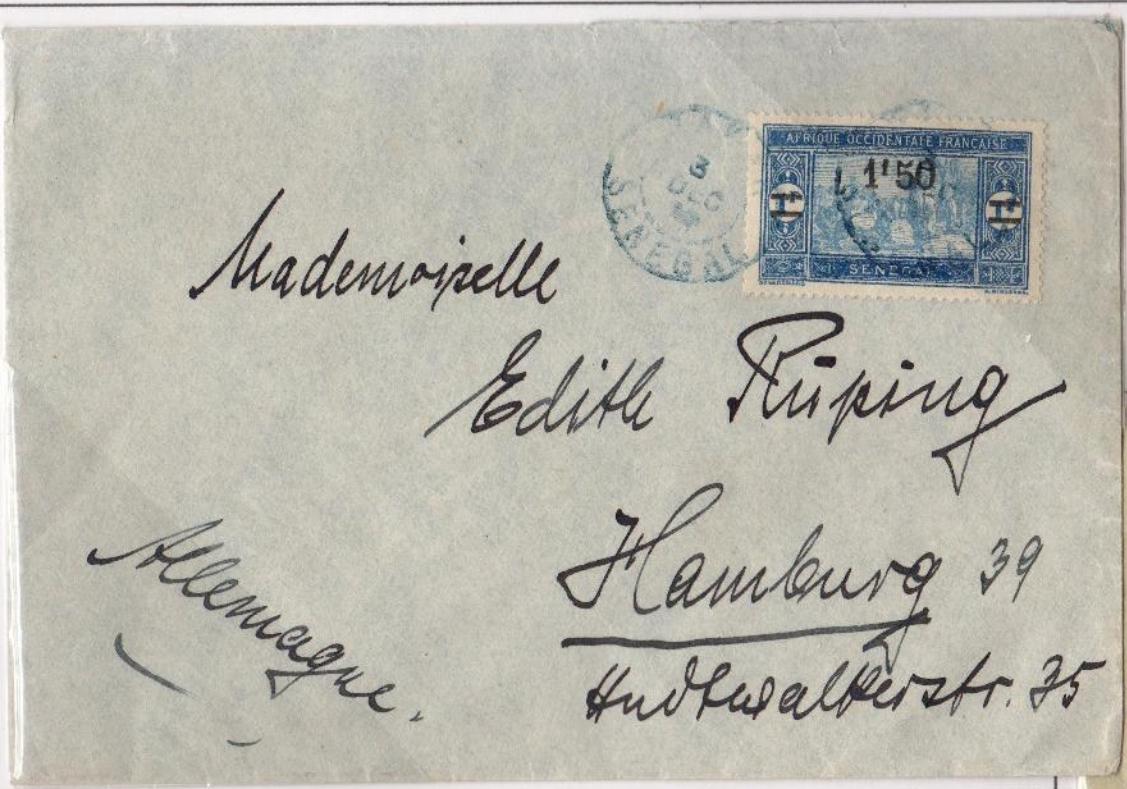 AFRIQUE OCCIDENTALE FRANÇAISE
1F50
SÉNÉGAL
3
DEC
SENEGAL
Mademoiselle
Edith Rüping
Hamburg 39
Hudtwalkerstr. 35
Allemagne.